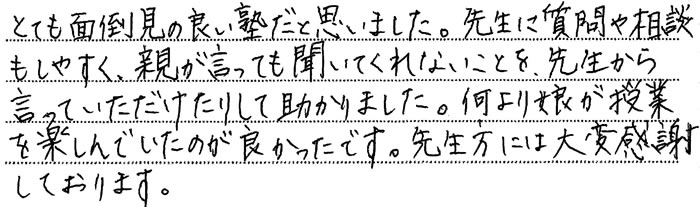 とても面倒見の良い塾だと思いました。先生に質問や相談
もしやすく、親が言っても聞いてくれないことを、先生から
言っていただけたりして助かりました。何より娘が授業
を楽しんでいたのが良かったです。先生方には大変感謝
しております。